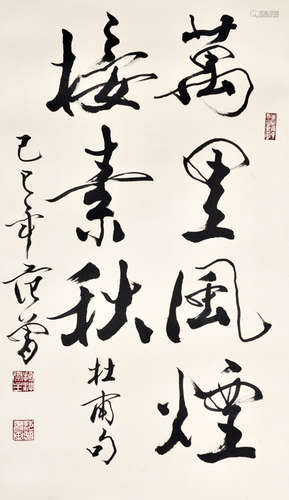 萬里風煙
接素秋
杜甫句
己巳年范曾